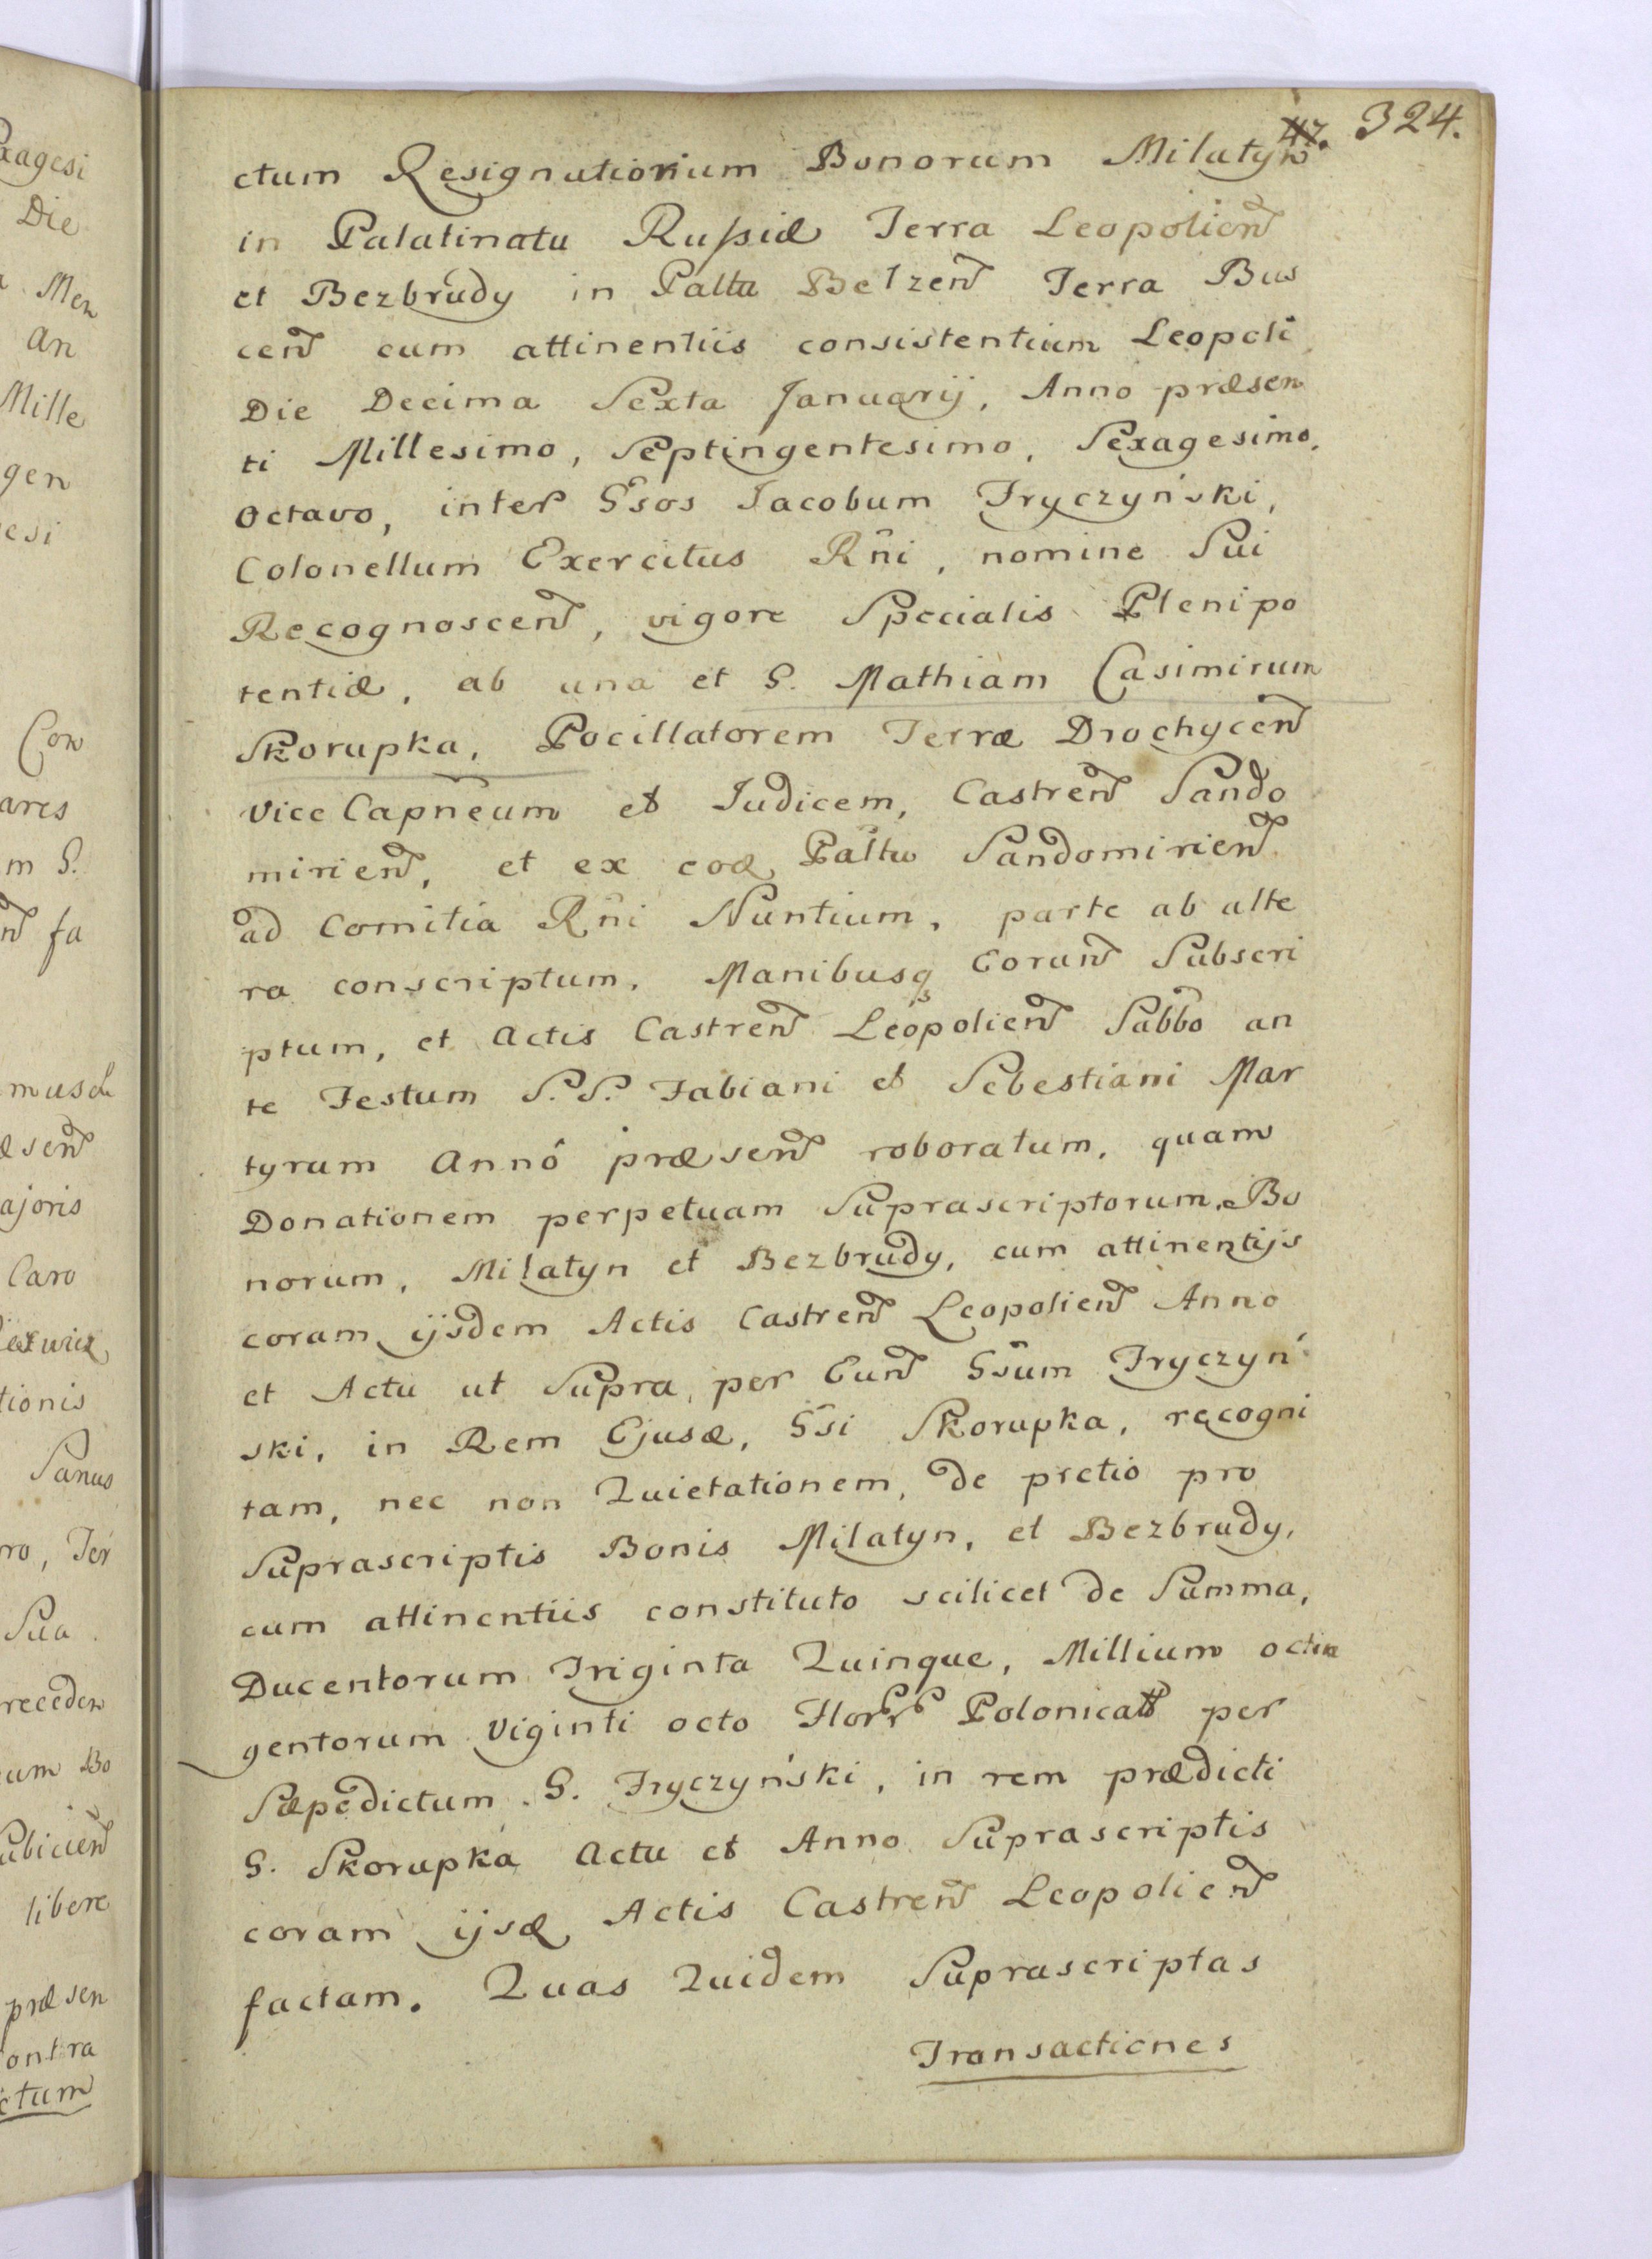 324.
ctum Resignationium Bonorum Milatyn
in Palatinatu Russiæ Terra Leopolien̄
et Bezbrudy in Palttu Belzen̄ Terra Bus
cen̄ cum attinentiis consistentium Leopoli
Die Decima Sexta Januarij, Anno præsen
ti Millesimo, Septingentesimo, Sexagesimo,
Octavo, inter Gsos Jacobum Fryczyński,
Colonellum Exercitus Rñi, nomine Sui
Recognoscen̄, vigore Specialis Plenipo
tentiæ, ab una et G. Mathiam Casimirum
Skorupka, Pocillatorem Terræ Drochycen̄
Vice Capñeum et Judicem, Castren̄ Sando
mirien̄, et ex eod, Palttu Sandomirien̄
ad Comitia Rñi Nuntium, parte ab alte
ra conscriptum, Manibusq Eorun̄ Subscri
ptum, et Actis Castren̄ Leopolien̄ Sabbo an
te Festum S.S. Fabiani et Sebestiani Mar
tyrum Anno præsen̄ roboratum, quam
Donationem perpetuam Suprascriptorum Bo
norum, Milatyn et Bezbrudy, cum attinentijs
coram ijsdem Actis Castren̄ Leopolien̄ Anno
et Actu ut Supra, per Eun̄ Gsum Fryczyń
ski, in Rem Ejusd, Gsi Skorupka, recogni
tam, nec non Quietationem, de pretio pro
Suprascriptis Bonis Milatyn, et Bezbrudy,
cum attinentiis constituto scilicet de Summa,
Ducentorum Triginta Quinque, Millium octin
gentorum Viginti octo Florr Polonical per
Sæpedictum G. Fryczyński, in rem prædicti
G. Skorupka Actu et Anno Suprascriptis
coram ijsd Actis Castren̄ Leopolien̄
factam. Quas Quidem Suprascriptas
Transactiones